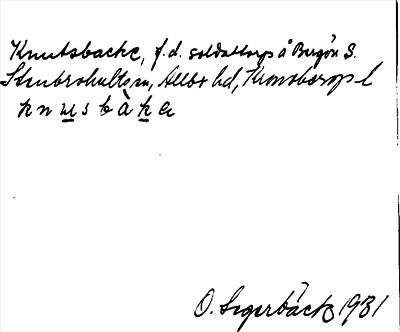 Knutsbacke, f.d. soldattorp å Bergön S.
Stenbrohults sn, Allbo hd, Kronobergs l
knusbàka
O. Segerbäck 1931